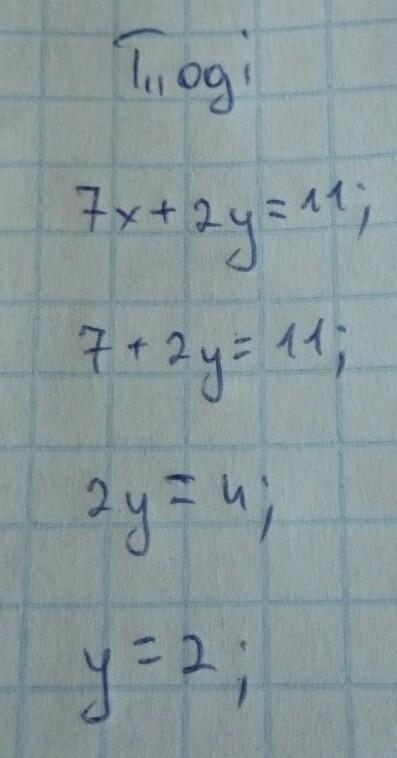 Тоді
7x + 2y = 11;
7 + 2y = 11;
2y = 4;
y = 2;